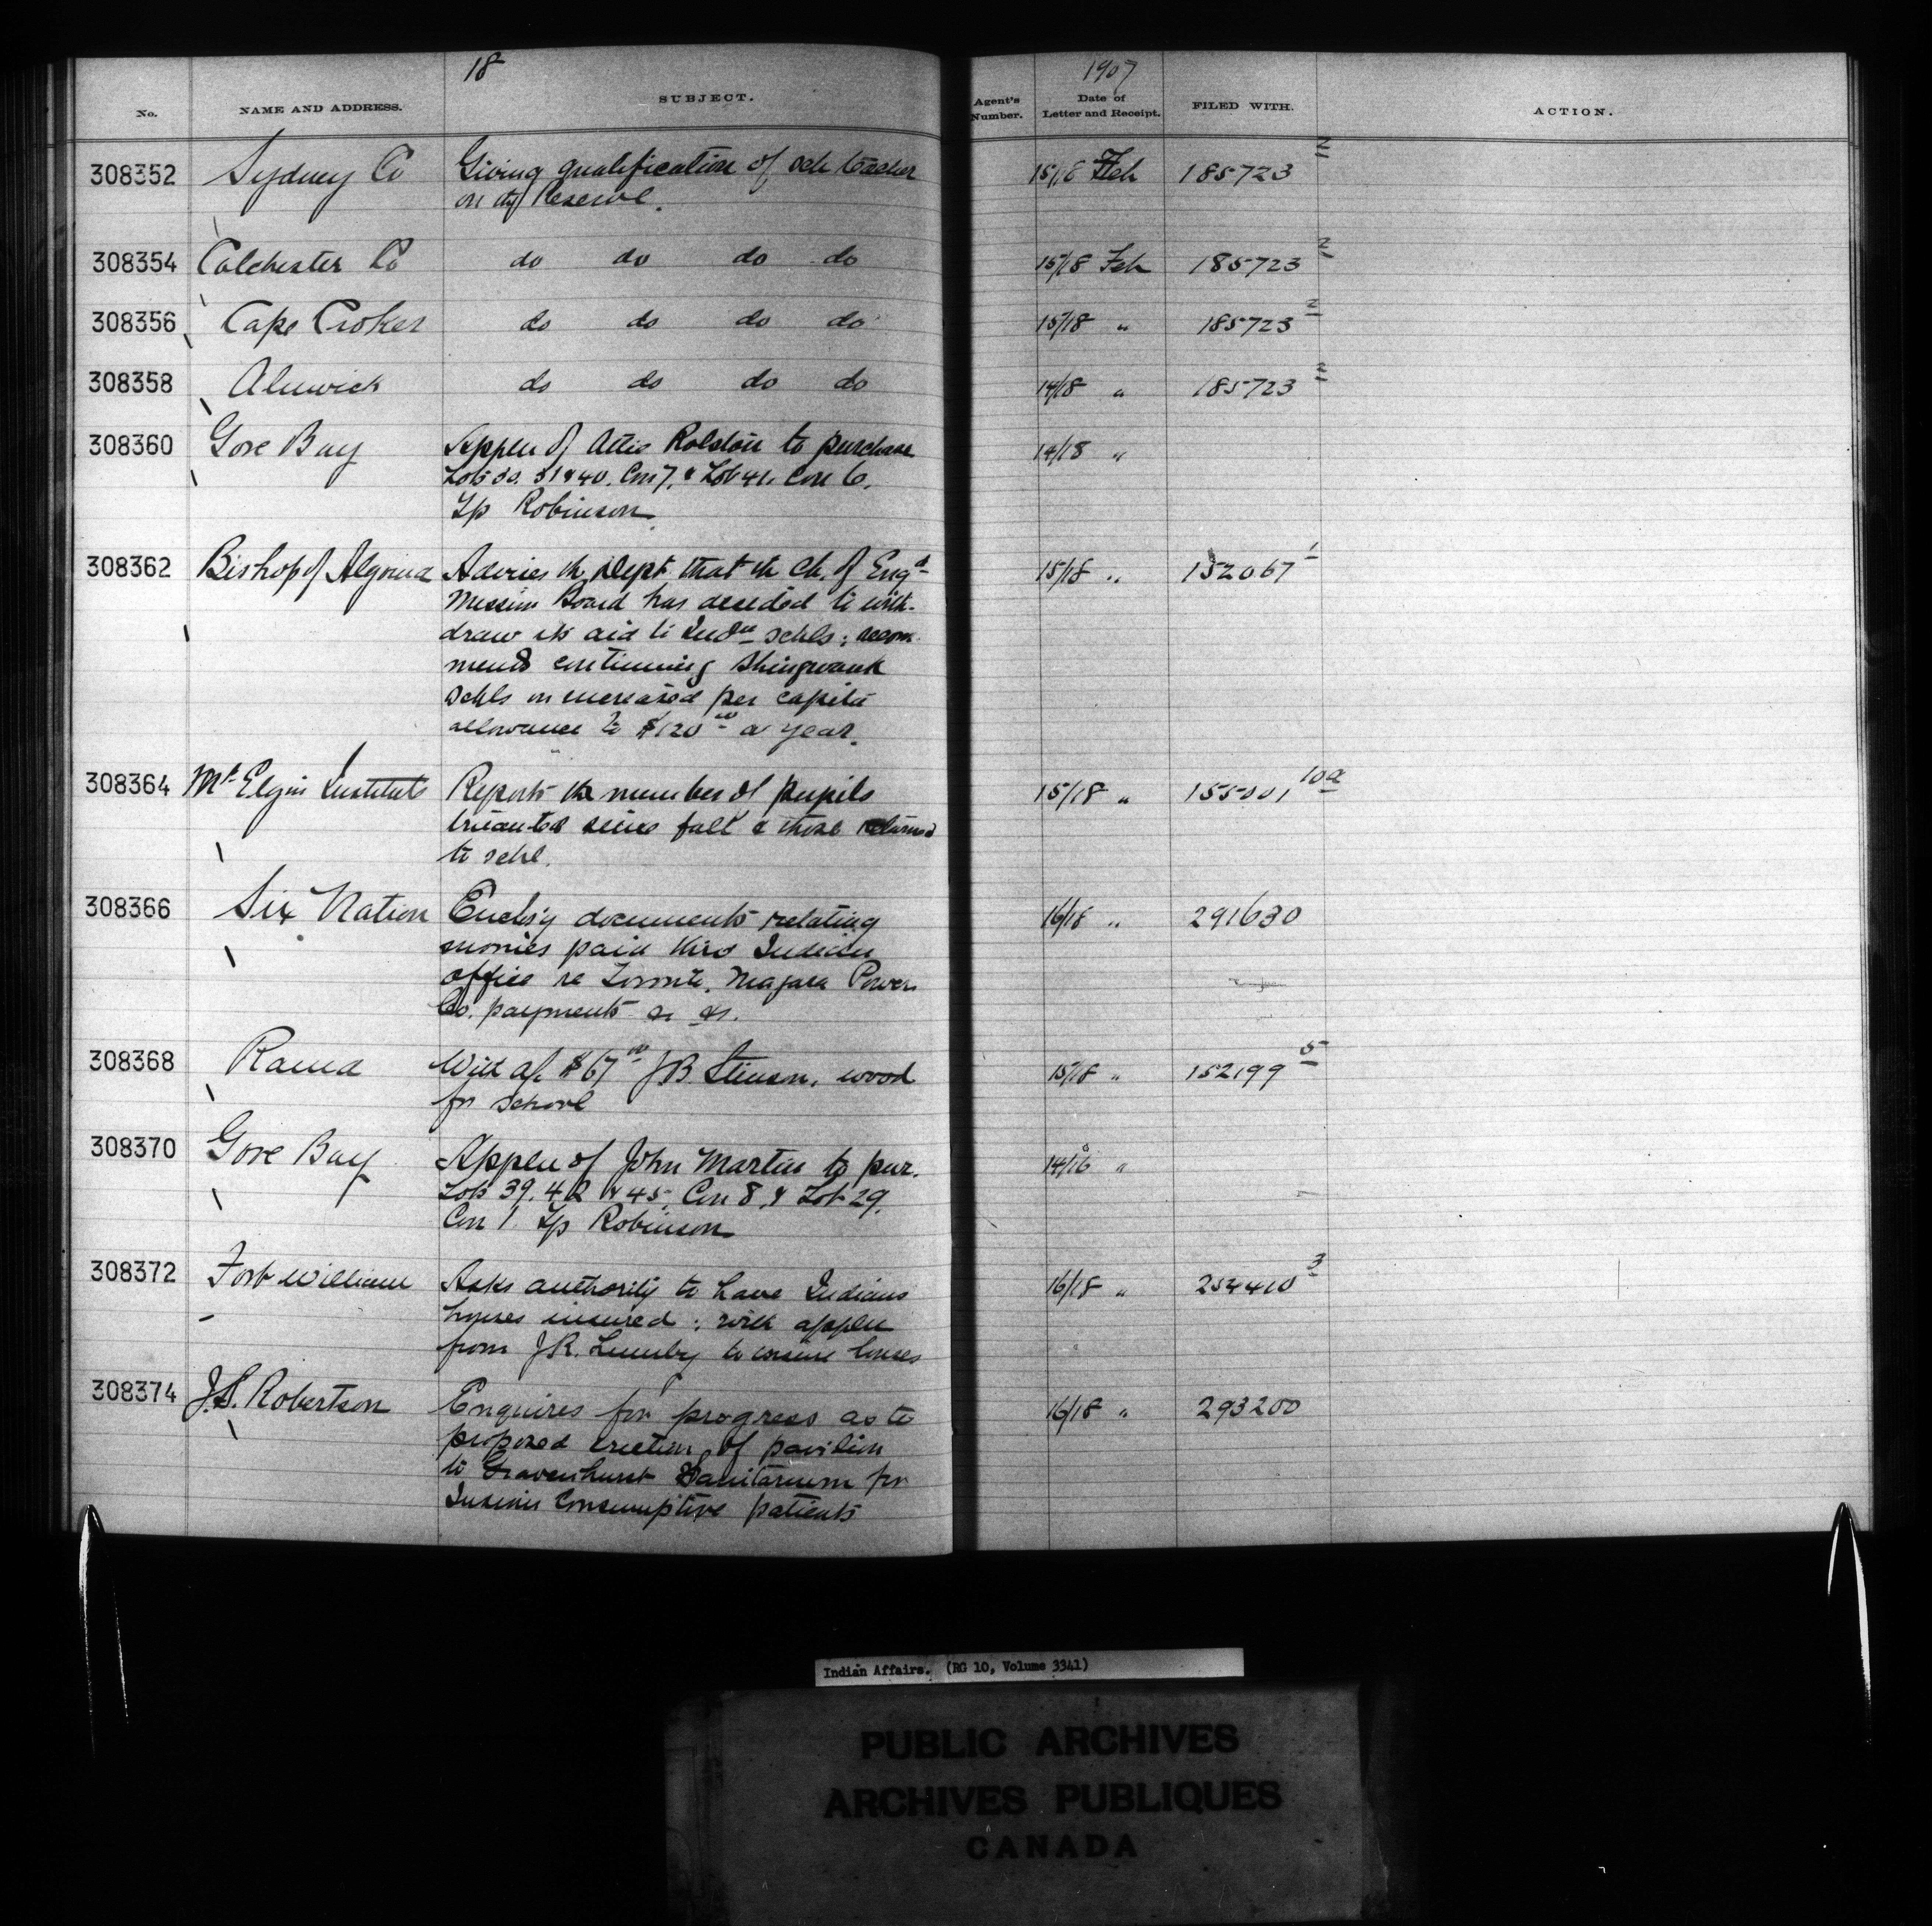 18
1907
No. NAME AND ADDRESS. SUBJECT. Agent's Number. Date of Letter and Receipt. FILED WITH. ACTION.
308352 Sydney Co Giving qualification of sch teacher 15/18 Feb 185723 2
on the Reserve.
308354 Colchester Co do do do do 15/18 Feb 185723 2
308356 Cape Croker do do do do 15/18 " 185723 2
308358 Alnwick do do do do 14/18 " 185723 2
308360 Gore Bay Appln of Rolston to purchase 14/18 "
Lots 30. 31 & 40. Con 7. & Lot 41. Con 6.
Tp Robinson
308362 Bishop of Algoma Advises th Dept that th Ch. of Engd 15/18 " 152067 1
Mission Board has decided to with-
draw its aid to Indn schls; recom-
mends continuing Shingwauk
schls on increased per capita
allowance to $120 00 a year.
308364 Mt Elgin Institute Reports the number of pupils 15/18 " 155001 10a
truanted since fall & those returned
to schl.
308366 Six Nation Encls'g documents relating 16/18 " 291630
monies paid thro Indian
office re Toronto. Niagara Power
Co. payments &c &c.
308368 Rama With a/c $67 00 J B. Stinson. wood 15/18 " 152199 5
for school
308370 Gore Bay Appln of John Martin to pur. 14/18 "
Lots 39. 42 & 45. Con 8. & Lot 29.
Con 1. Tp Robinson
308372 Fort William Asks authority to have Indians 16/18 " 254410 3
houses insured; with appln
from J R. Lumby to insure houses
308374 J.S. Robertson Enquires for progress as to 16/18 " 293200
proposed erection of pavilion
to Gravenhurst Sanitarium for
Indian Consumptive patients
Indian Affairs. (RG 10, Volume 3341)
PUBLIC ARCHIVES
ARCHIVES PUBLIQUES
CANADA